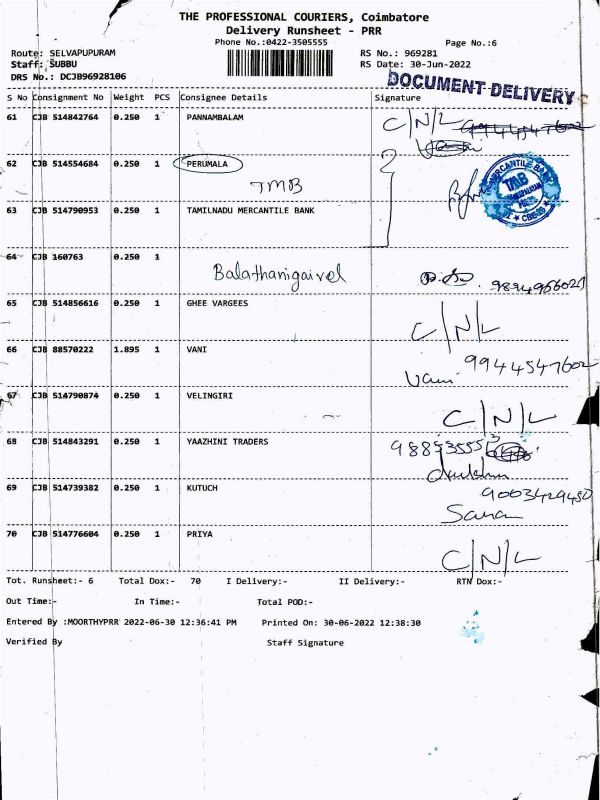 THE PROFESSIONAL COURIERS, Coimbatore
Delivery Runsheet - PRR
Phone No.:0422-3505555
Page No.:6
Route: SELVAPUPURAM
RS No.: 969281
Staff: SUBBU
RS Date: 30-Jun-2022
DRS No.: DCJB96928106
DOCUMENT DELIVERY
S No Consignment No Weight PCS Consignee Details Signature
61 CJB 514842764 0.250 1 PANNAMBALAM C/N/L 9944547602
62 CJB 514554684 0.250 1 PERUMALA
TMB
TMB
63 CJB 514790953 0.250 1 TAMILNADU MERCANTILE BANK
64 CJB 160763 0.250 1
Balathanigaivel
65 CJB 514856616 0.250 1 GHEE VARGEES C/N/L
66 CJB 88570222 1.895 1 VANI 9944547602
Vani
67 CJB 514790874 0.250 1 VELINGIRI C/N/L
68 CJB 514843291 0.250 1 YAAZHINI TRADERS
69 CJB 514739382 0.250 1 KUTUCH 9003429450
70 CJB 514776604 0.250 1 PRIYA C/N/L
Tot. Runsheet:- 6 Total Dox:- 70 I Delivery:- II Delivery:- RTN Dox:-
Out Time:- In Time:- Total POD:-
Entered By :MOORTHYPRR 2022-06-30 12:36:41 PM Printed On: 30-06-2022 12:38:30
Verified By Staff Signature